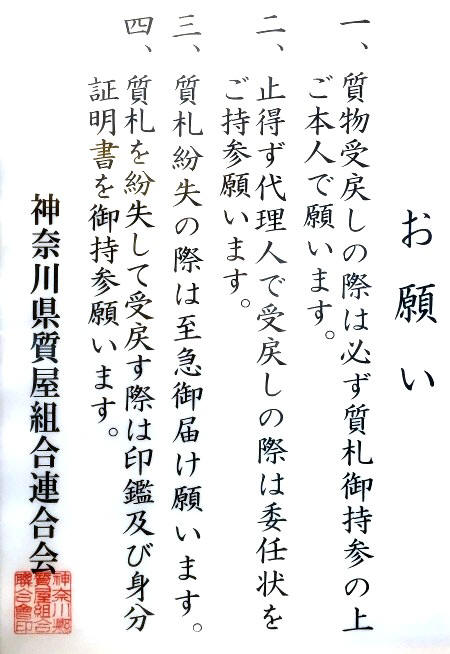 お願い
一、質物受戻しの際は必ず質札御持参の上
ご本人で願います。
二、止得ず代理人で受戻しの際は委任状を
ご持参願います。
三、質札紛失の際は至急御届け願います。
四、質札を紛失して受戻す際は印鑑及び身分
証明書を御持参願います。
神奈川県質屋組合連合会
神奈川縣
質屋組合
聯合會印